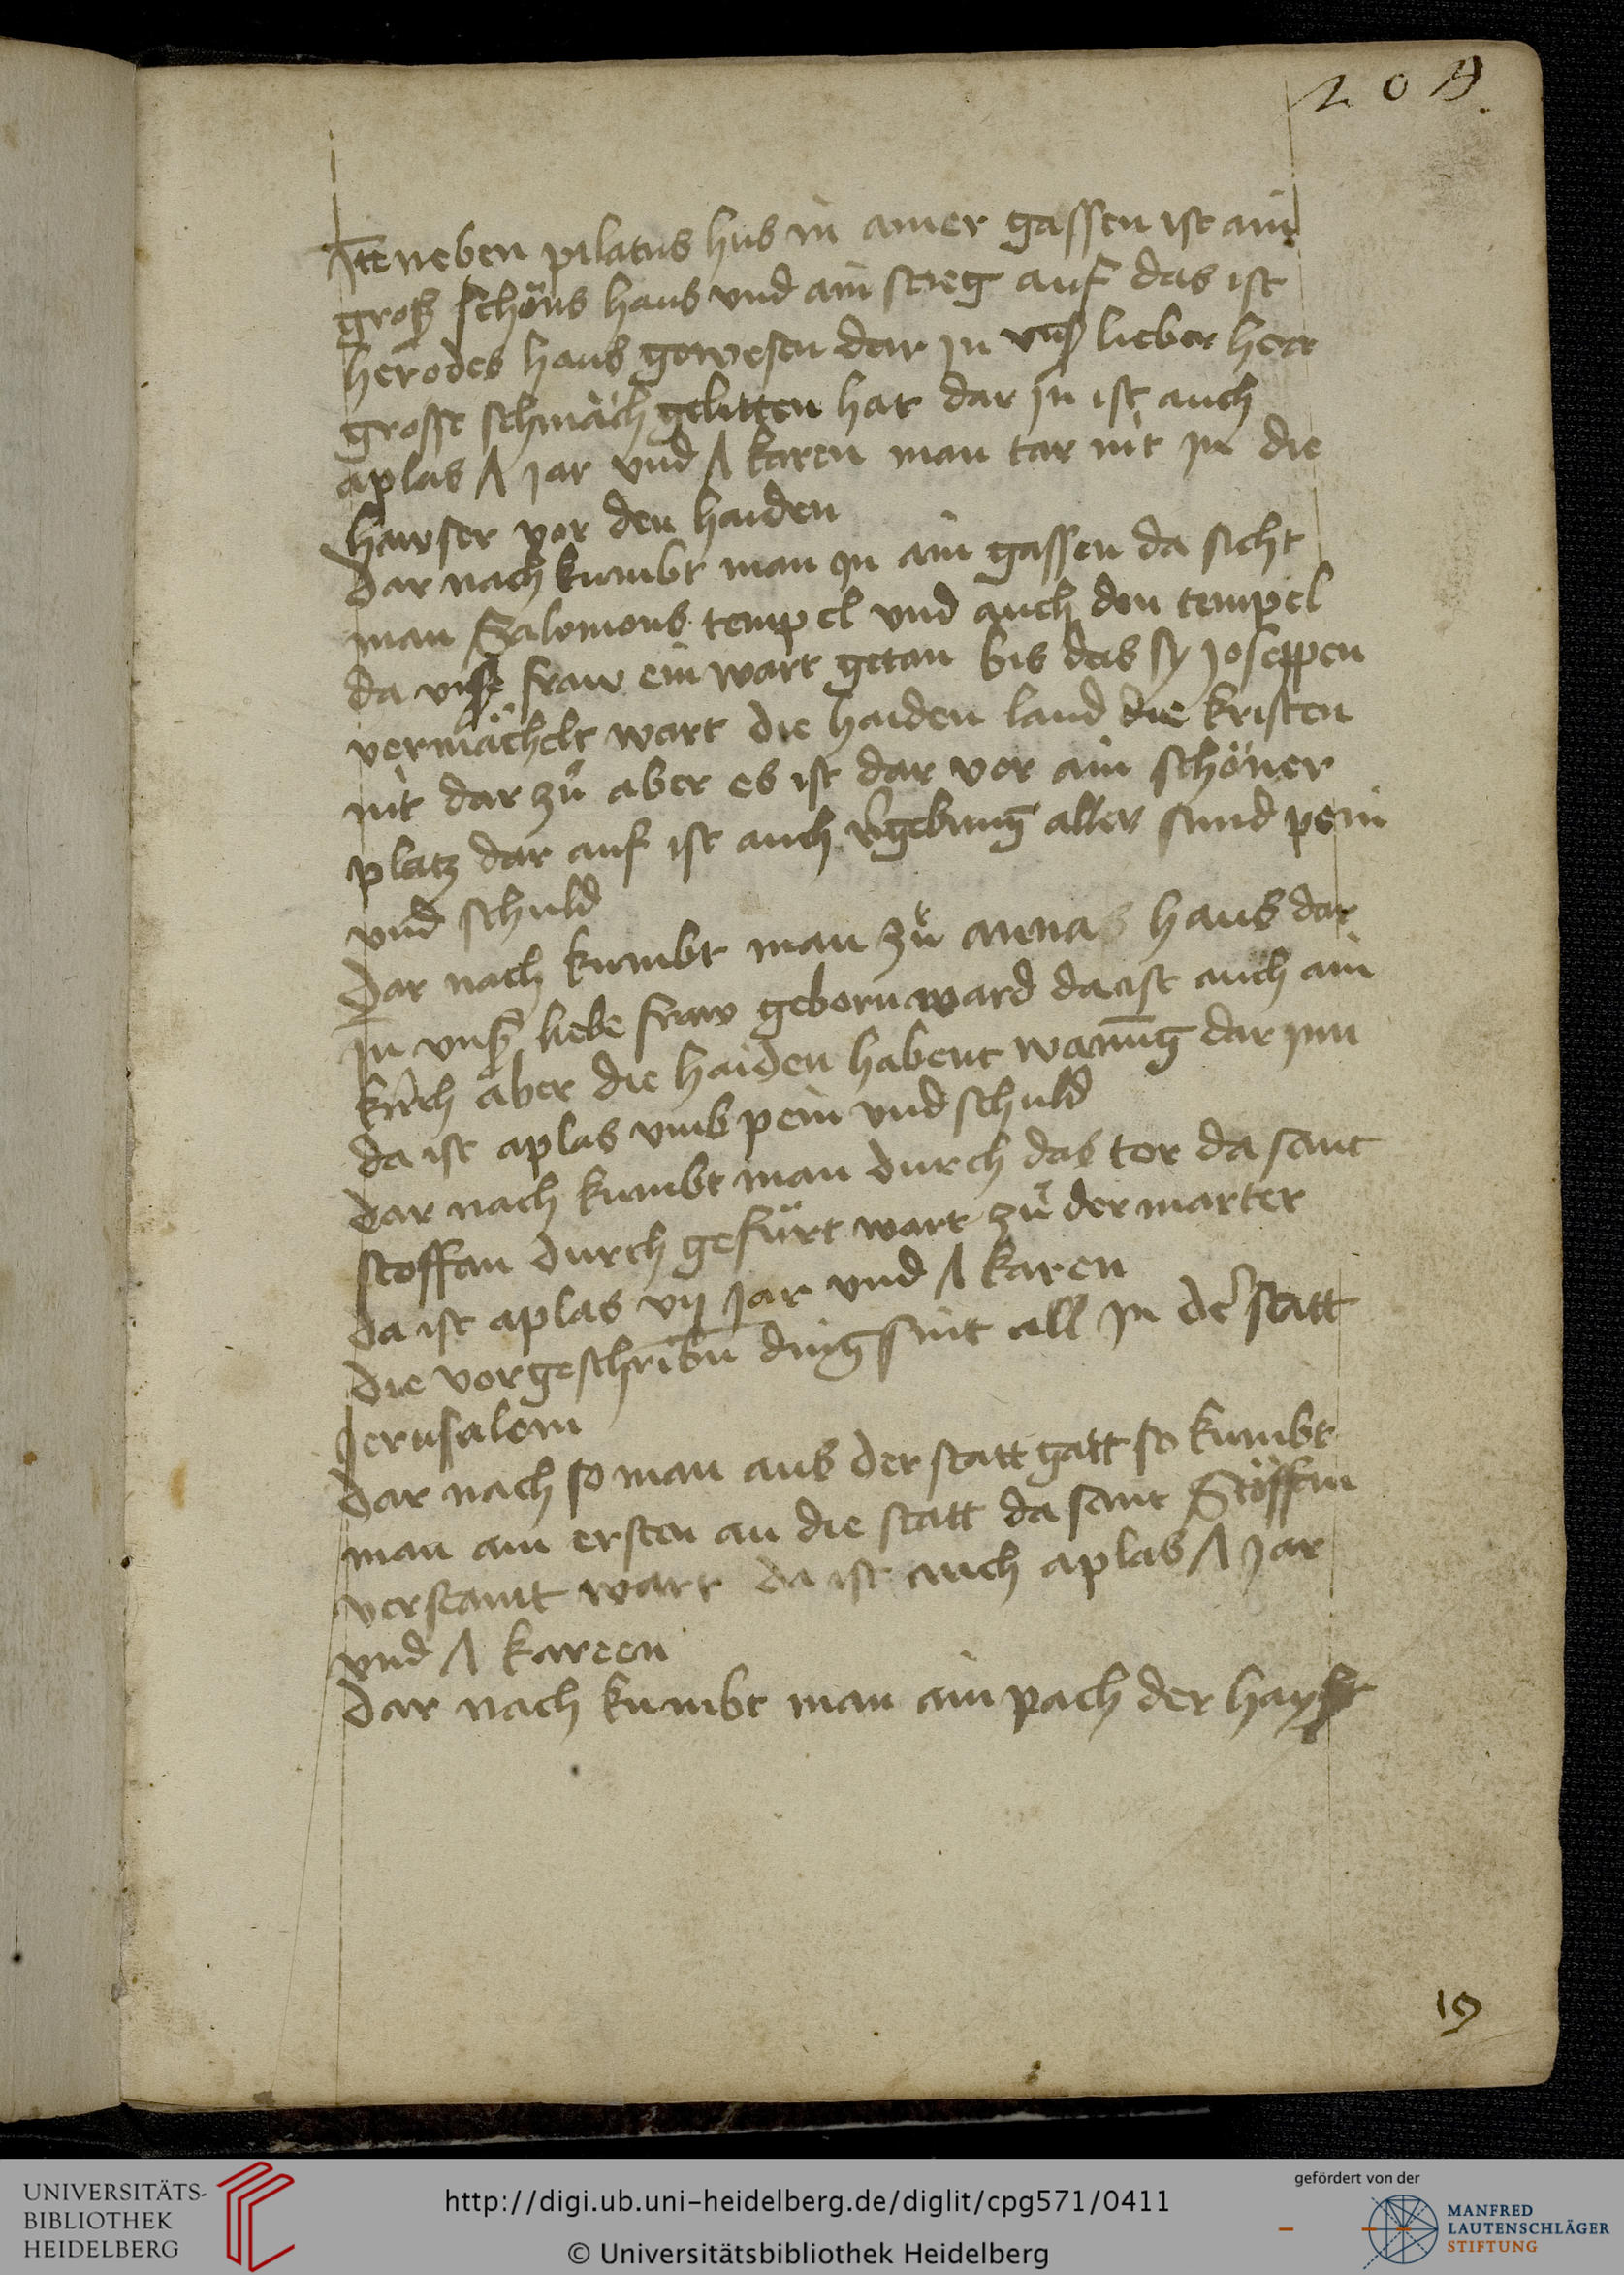 209.
Itē neben pilatus hus in ainer gassen ist ain
groß schöns haus vnd ain steg auf das ist
herodes haus gewesen dar in vnsß lieber herr
grosse schmäch gelitten hat dar jn ist auch
aplas Λ jar vnd Λ karen man tar nit jn die
hawser vor den haiden
dar nach kumbt man jn ain gassen da sicht
man Salomons tempel vnd auch den tempel
da vnse fraw ein wart getan bis das sy joseppen
vermächelt wart die haiden land die kristen
nit dar zů aber es ist dar vor ain schöner
platz dar auf ist auch v̄gebung aller sund pein
vnd schuld
Dar nach kumbt man zů annas haus dar
jn vnsß liebe fraw geborn ward da ist auch ain
kirch aber die haiden habent wanūg dar jnn
da ist aplas vmb pein vnd schuld
dar nach kumbt man durch das tor da sant
stoffan durch gefürt wart zů der marter
da ist aplas vij jar vnd Λ karen
die vorgeschribn̄ ding sint all jn de᷑ statt
Jerusalem
dar nach so man aus der statt gatt so kumbt
man am ersten an die statt da sant Stöffan
verstaint wart da ist auch aplas Λ jar
vnd Λ kareen
dar nach kumbt man ain pach der hayst
19
UNIVERSITÄTS-
BIBLIOTHEK
HEIDELBERG
http://digi.ub.uni-heidelberg.de/diglit/cpg571/0411
© Universitätsbibliothek Heidelberg
gefördert von der
MANFRED
LAUTENSCHLÄGER
STIFTUNG